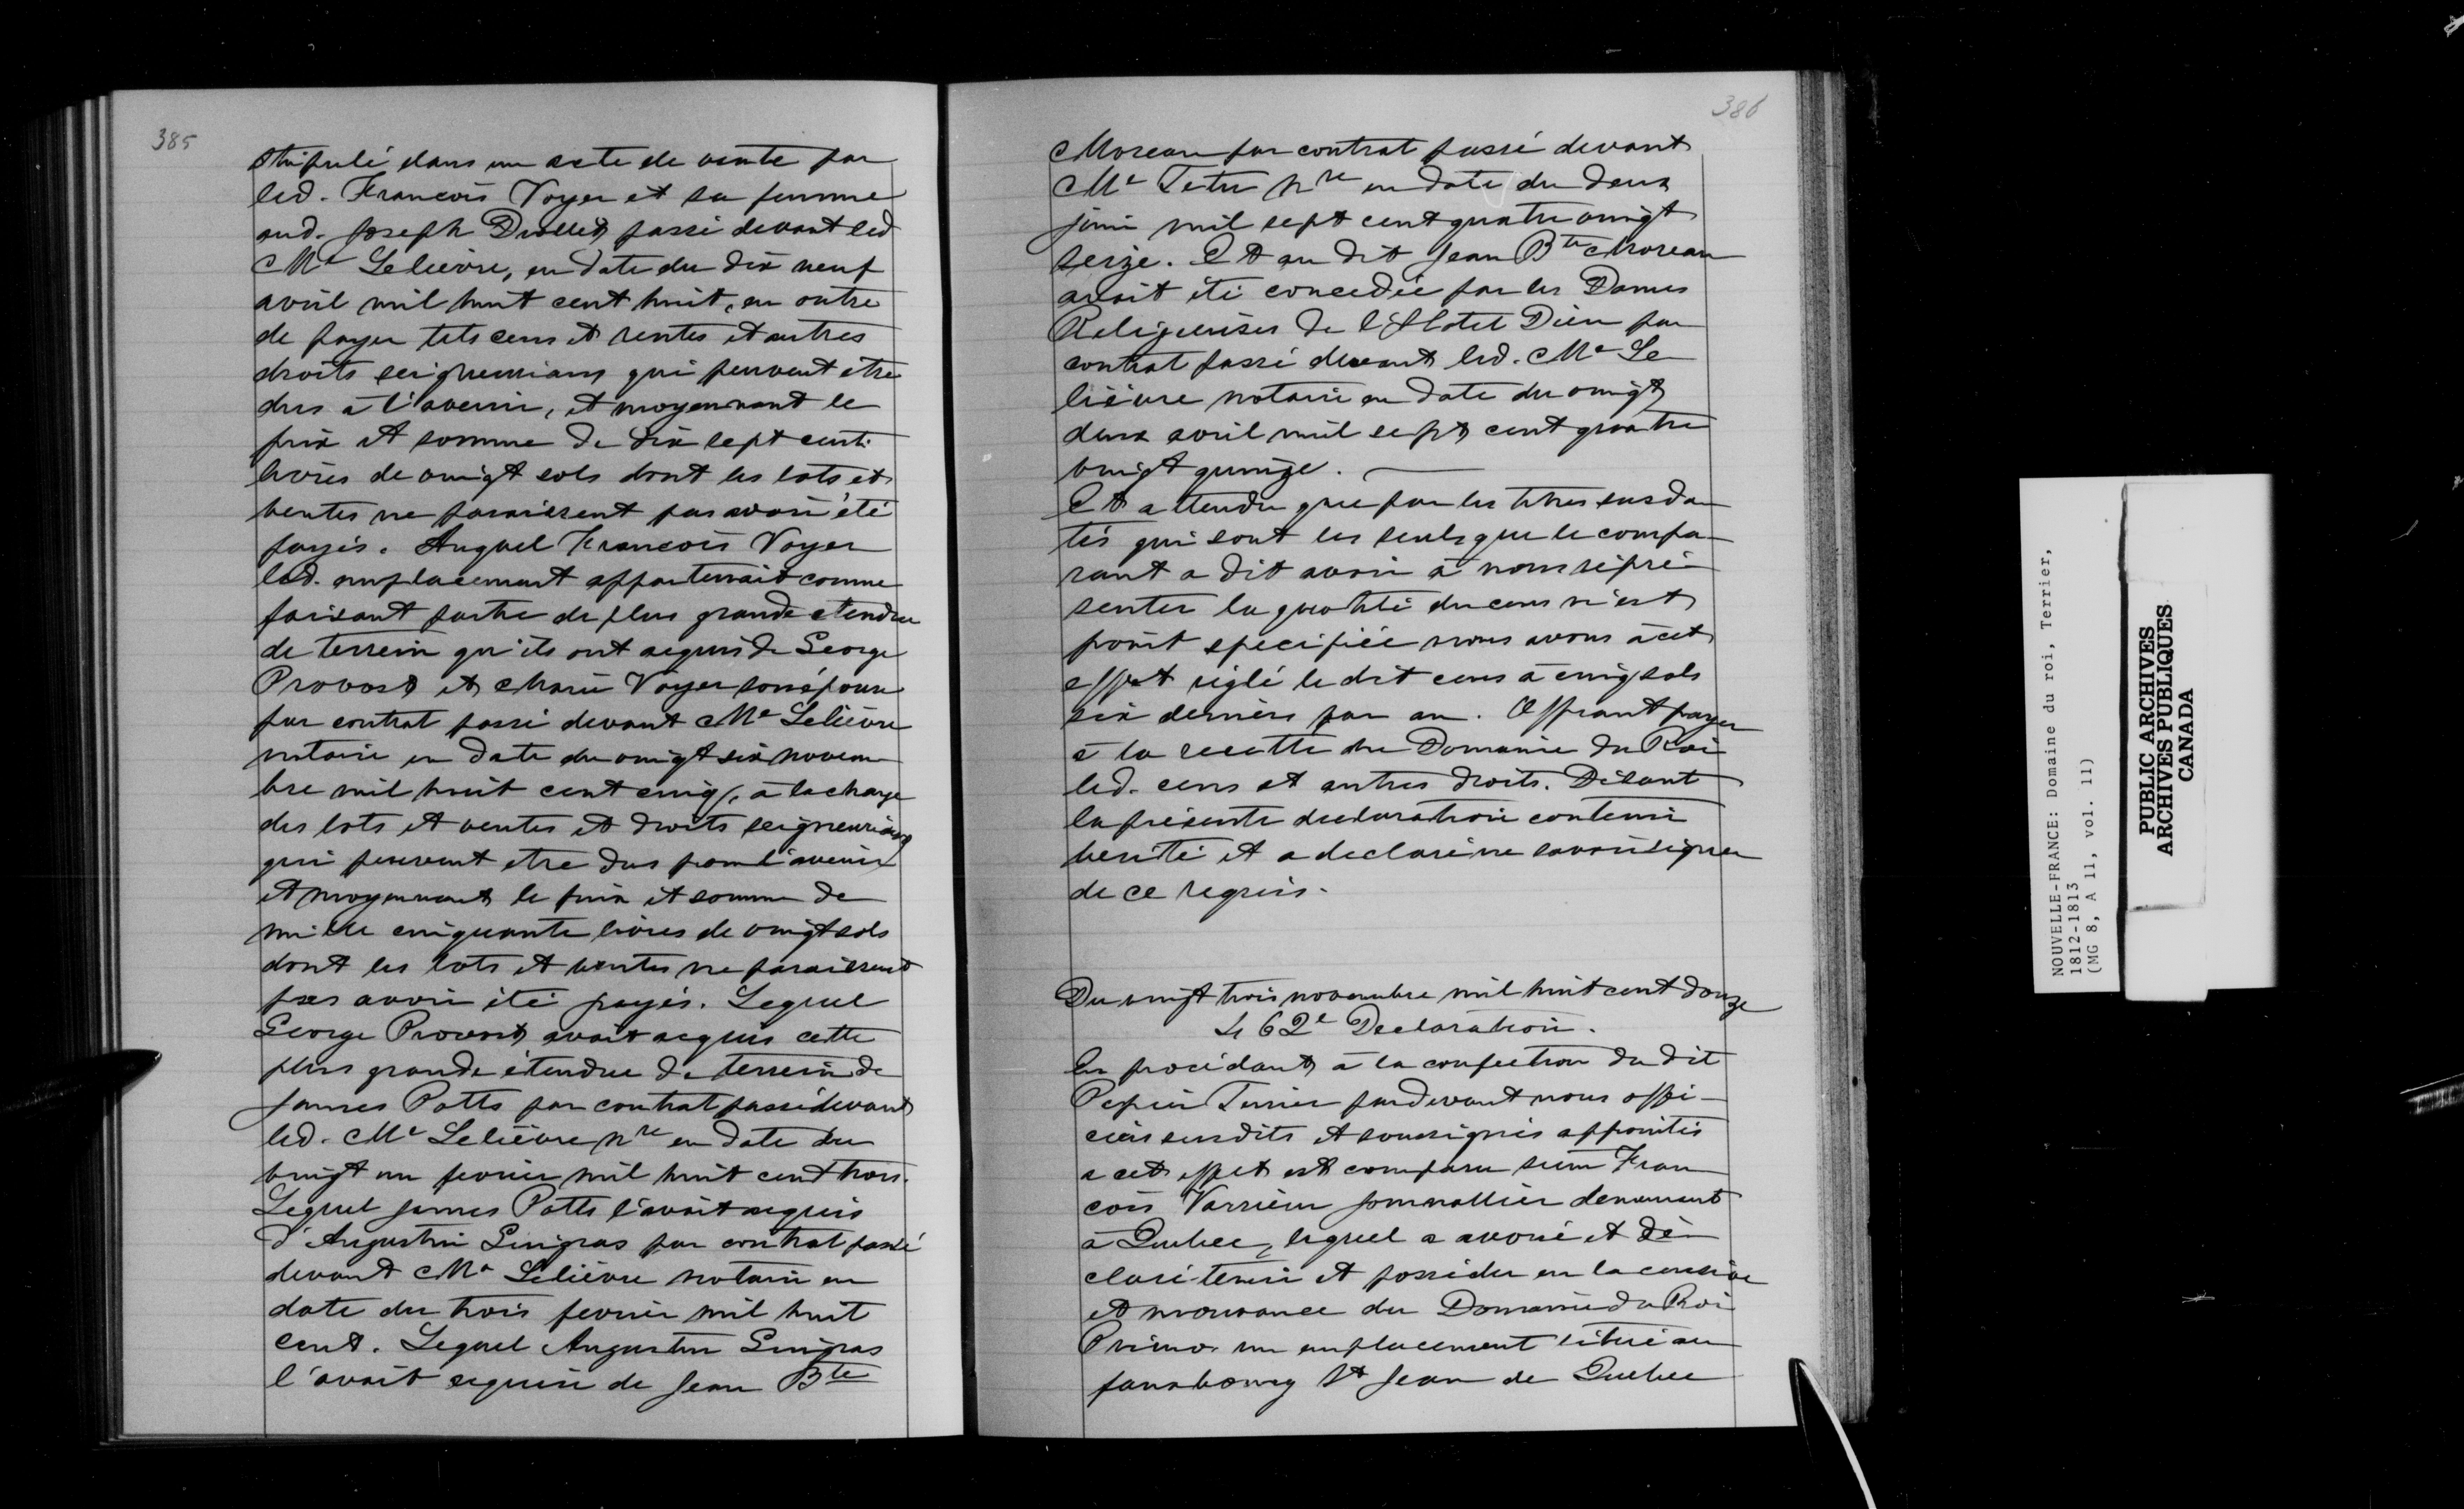 385
stipulé dans un acte de vente par
led. Francois Voyer et sa femme
aud. Joseph Drolet passé devant led
Me Lelièvre, en date du dix neuf
avril mil huit cent huit, en outre
de payer tels cens et rentes et autres
droits seigneuriaux qui peuvent etre
dus à l'avenir, et moyennant le
prix et somme de dix sept cent
livres de vingt sols dont les lots et
ventes ne paraissent pas avoir été
payés. Auquel Francois Voyer
led. emplacement appartenait comme
faisant partie de plus grande etendue
de terrein qu'ils ont acquis de George
Provost et Marie Voyer son épouse
par contrat passé devant Me Lelièvre
notaire en date du vingt six novem
bre mil huit cent cinq, à la charge
des lots et ventes et droits seigneuriaux
qui peuvent etre dus pour l'avenir
et moyennant le prix et somme de
mille cinquante livres de vingt sols
dont les lots et ventes ne paraissent
pas avoir été payés. Lequel
George Provost avait acquis cette
plus grande étendue de terrein de
James Potts par contrat passé devant
led. Me Lelièvre nre en date du
vingt un fevrier mil huit cent trois.
Lequel James Potts l'avait acquis
d'Augustin Gingras par contrat passé
devant Me Lelièvre notaire en
date du trois fevrier mil huit
cent. Lequel Augustin Gingras
l'avait acquis de Jean Bte
386
Moreau par contrat passé devant
Me Tetu nre en date du deux
juin mil sept cent quatre vingt
seize. Et au dit Jean Bte Moreau
avait été concedée par les Dames
Religieuses de l'Hotel Dieu par
contrat passé devant led. Me Le
lièvre notaire en date du vingt
deux avril mil sept cent quatre
vingt quinze.
Et attendu que par les titres susda
tés qui sont les seuls que le compa-
rant a dit avoir à nous répré-
senter la quotité du cens n'est
point specifiée nous avons à cet
effet réglé le dit cens à cinq sols
six deniers par an. Offrant payer
à la recette du Domaine du Roi
led. cens et autres droits. Disant
la présente declaration contenir
verité et a declaré ne savoir signer
de ce requis.
Du vingt trois novembre mil huit cent douze
462e Declaration.
En procédant à la confection du dit
Papier Terrier pardevant nous offi-
ciers susdits et soussignés appointés
a cet effet est comparu sieur Fran
cois Varrieur journallier demeurant
à Quebec, lequel a avoué et dé-
claré tenir et posséder en la censive
et mouvance du Domaine du Roi
Primo un emplacement situé au
fauxbourg St Jean de Quebec
NOUVELLE-FRANCE: Domaine du roi, Terrier,
1812-1813
(MG 8, A 11, vol. 11)
PUBLIC ARCHIVES
ARCHIVES PUBLIQUES
CANADA